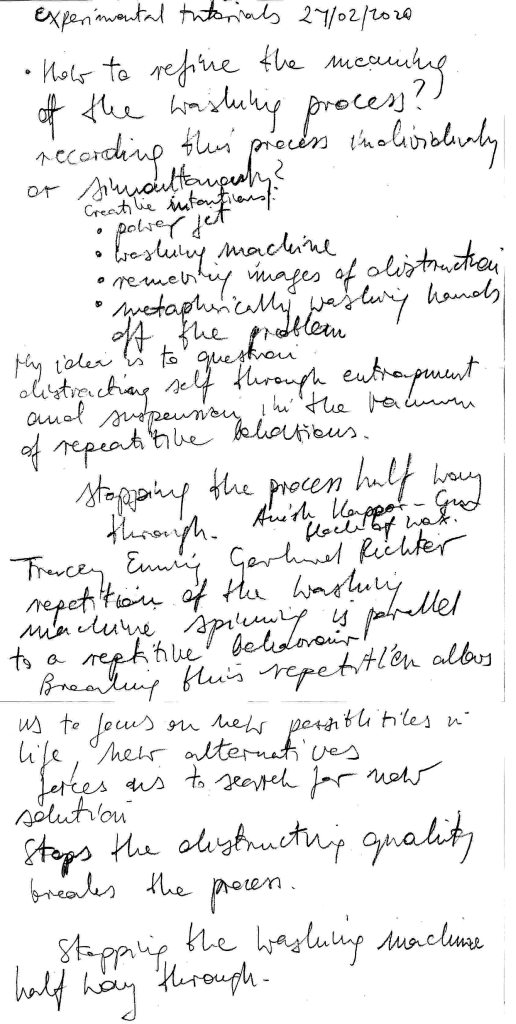 Experimental tutorials 27/02/2020
• How to refine the meaning
off the washing process?
recording this process individually
or simoultanously?
Creative intentions:
• power jet
• washing machine
• removing images of distruction
• metaphorically washing hands
off the problem
My idea is to question
distracting self through entrapment
and suspension in the vacuum
of repeatitive behaviours.
Stopping the process half way
through.
Anish Kappor -
block of wax.
Tracey Emin, Gerhard Richter
repetition of the washing
machine spinning is parallel
to a reptitive behaviour
Breaking this repetition allows
us to focus on new possiblitiles in
life, new alternatives
forces us to search for new
solution
Stops the distructing quality
breaks the process.
Stopping the washing machine
half way through.